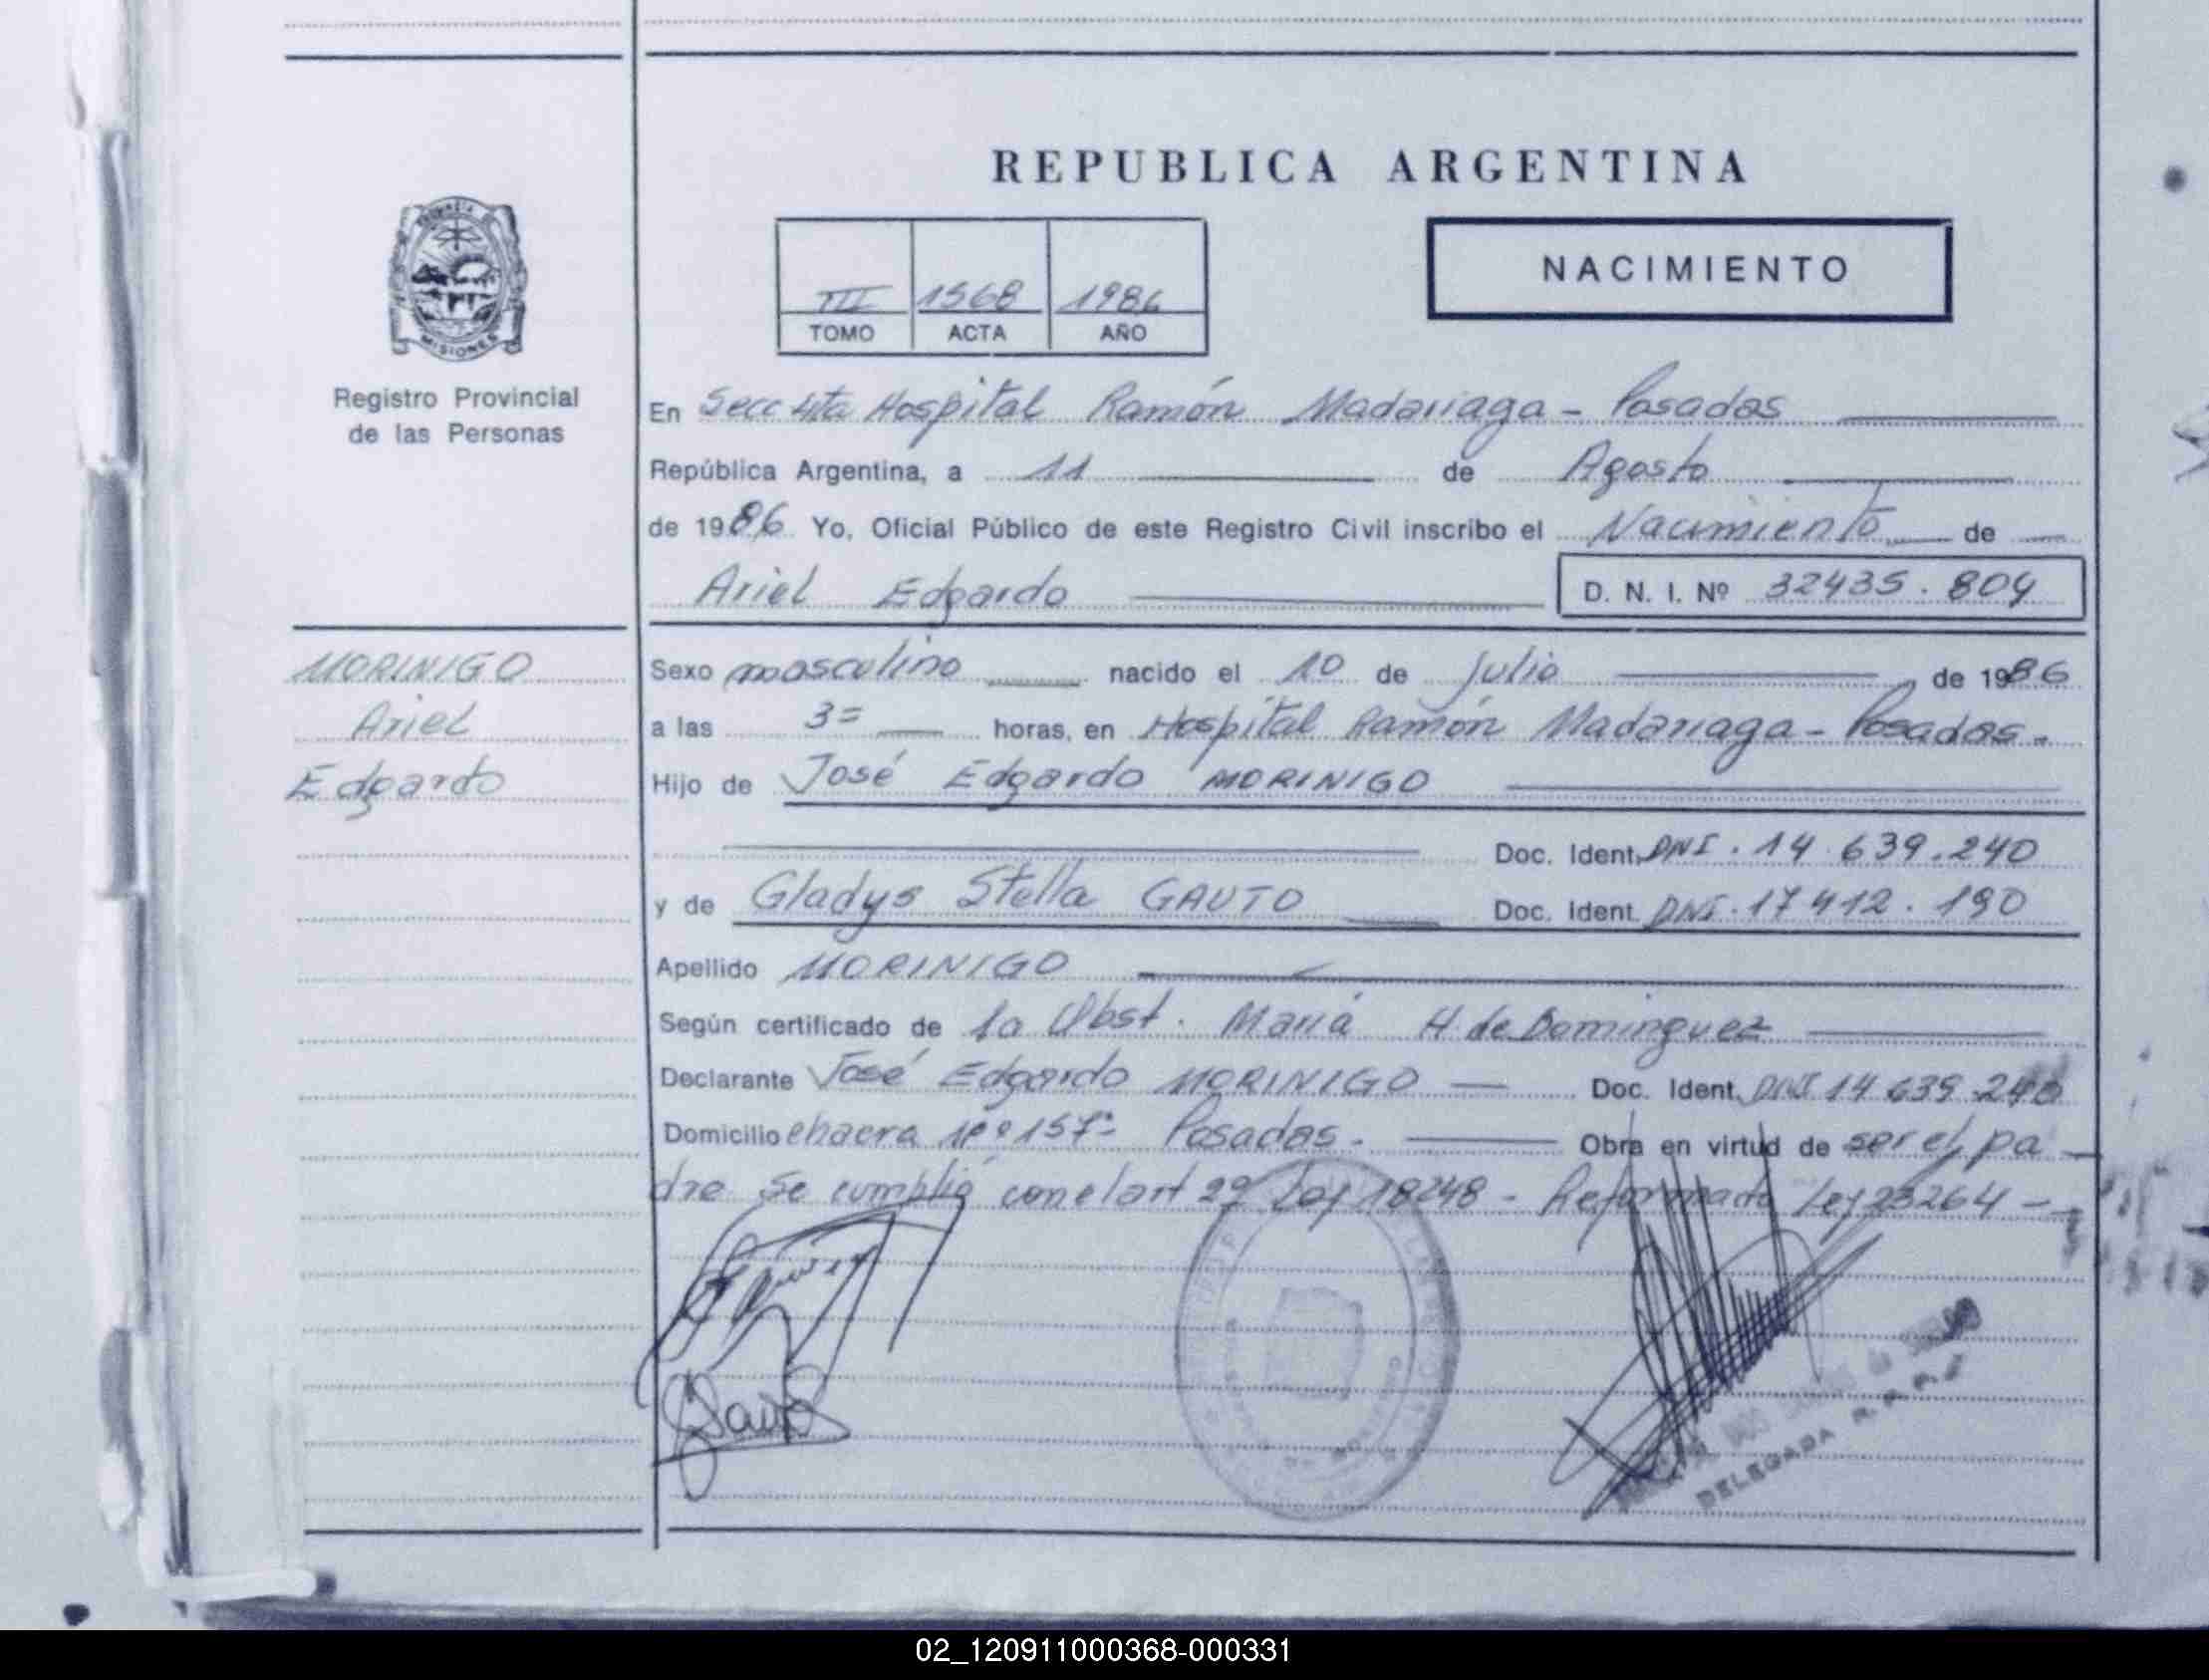 REPUBLICA ARGENTINA
PROVINCIA DE
MISIONES
Registro Provincial
de las Personas
III 1568 1986
TOMO ACTA AÑO
NACIMIENTO
En Secc 4ta Hospital Ramón Madariaga - Posadas
República Argentina, a 11 de Agosto
de 1986 Yo, Oficial Público de este Registro Civil inscribo el Nacimiento de
Ariel Edgardo D. N. I. Nº 32435.804
MORINIGO
Ariel
Edgardo
Sexo masculino nacido el 10 de Julio de 1986
a las 3= horas, en Hospital Ramón Madariaga - Posadas.
Hijo de José Edgardo MORINIGO
Doc. Ident. DNI. 14 639.240
y de Gladys Stella GAUTO Doc. Ident. DNI. 17 412.190
Apellido MORINIGO
Según certificado de la Obst. María H de Dominguez
Declarante José Edgardo MORINIGO Doc. Ident. DNI 14 639.240
Domicilio chacra Nº 157= Posadas. Obra en virtud de ser el pa
dre Se cumplió con el art 29 Ley 18248 - Reformado Ley 23264 -
Gauto
DELEGADA
02_120911000368-000331